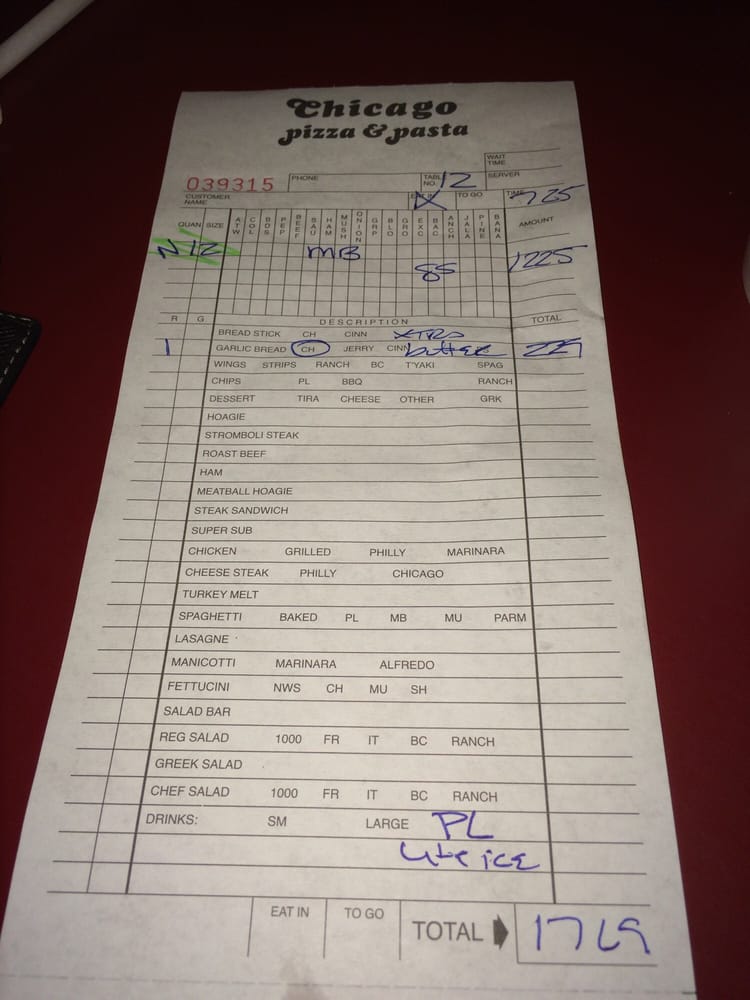 Chicago
pizza & pasta
WAIT TIME
039315 PHONE TABLE NO. 12 SERVER
CUSTOMER NAME EAT IN X TO GO TIME 725
QUAN SIZE ATW COL BDS PEP BEEF SAU HAM MUSH ONION GRP BLO GRO EXC BAC ANCH JALA PINE BANA AMOUNT
N 12 MB 1225
85
R G DESCRIPTION TOTAL
BREAD STICK CH CINN XTRA
1 GARLIC BREAD CH JERRY CINN butter 229
WINGS STRIPS RANCH BC T'YAKI SPAG
CHIPS PL BBQ RANCH
DESSERT TIRA CHEESE OTHER GRK
HOAGIE
STROMBOLI STEAK
ROAST BEEF
HAM
MEATBALL HOAGIE
STEAK SANDWICH
SUPER SUB
CHICKEN GRILLED PHILLY MARINARA
CHEESE STEAK PHILLY CHICAGO
TURKEY MELT
SPAGHETTI BAKED PL MB MU PARM
LASAGNE
MANICOTTI MARINARA ALFREDO
FETTUCINI NWS CH MU SH
SALAD BAR
REG SALAD 1000 FR IT BC RANCH
GREEK SALAD
CHEF SALAD 1000 FR IT BC RANCH
DRINKS: SM LARGE PL
Lite ice
EAT IN TO GO TOTAL 1769